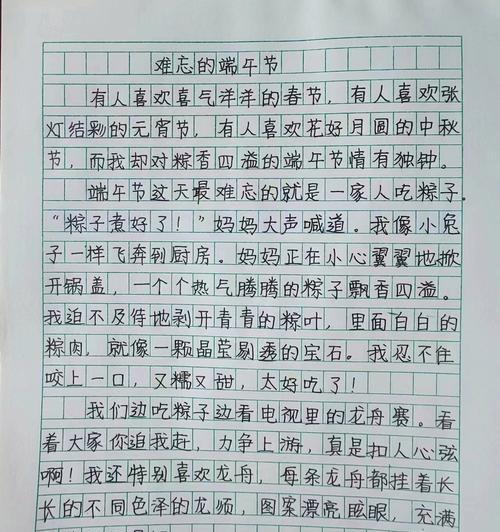 难忘的端午节
有人喜欢喜气洋洋的春节，有人喜欢张
灯结彩的元宵节，有人喜欢花好月圆的中秋
节，而我却对粽香四溢的端午节情有独钟。
端午节这天最难忘的就是一家人吃粽子.
“粽子煮好了！”妈妈大声喊道。我像小兔
子一样飞奔到厨房。妈妈正在小心翼翼地掀
开锅盖，一个个热气腾腾的粽子飘香四溢。
我迫不及待地剥开青青的粽叶，里面白白的
粽肉，就像一颗晶莹剔透的宝石。我忍不住
咬上一口，又糯又甜，太好吃了！
我们边吃粽子边看电视里的龙舟赛。看
着大家你追我赶，力争上游，真是扣人心弦
啊！我还特别喜欢龙舟，每条龙舟都挂着长
长的不同色泽的龙须，图案漂亮眩眼，充满